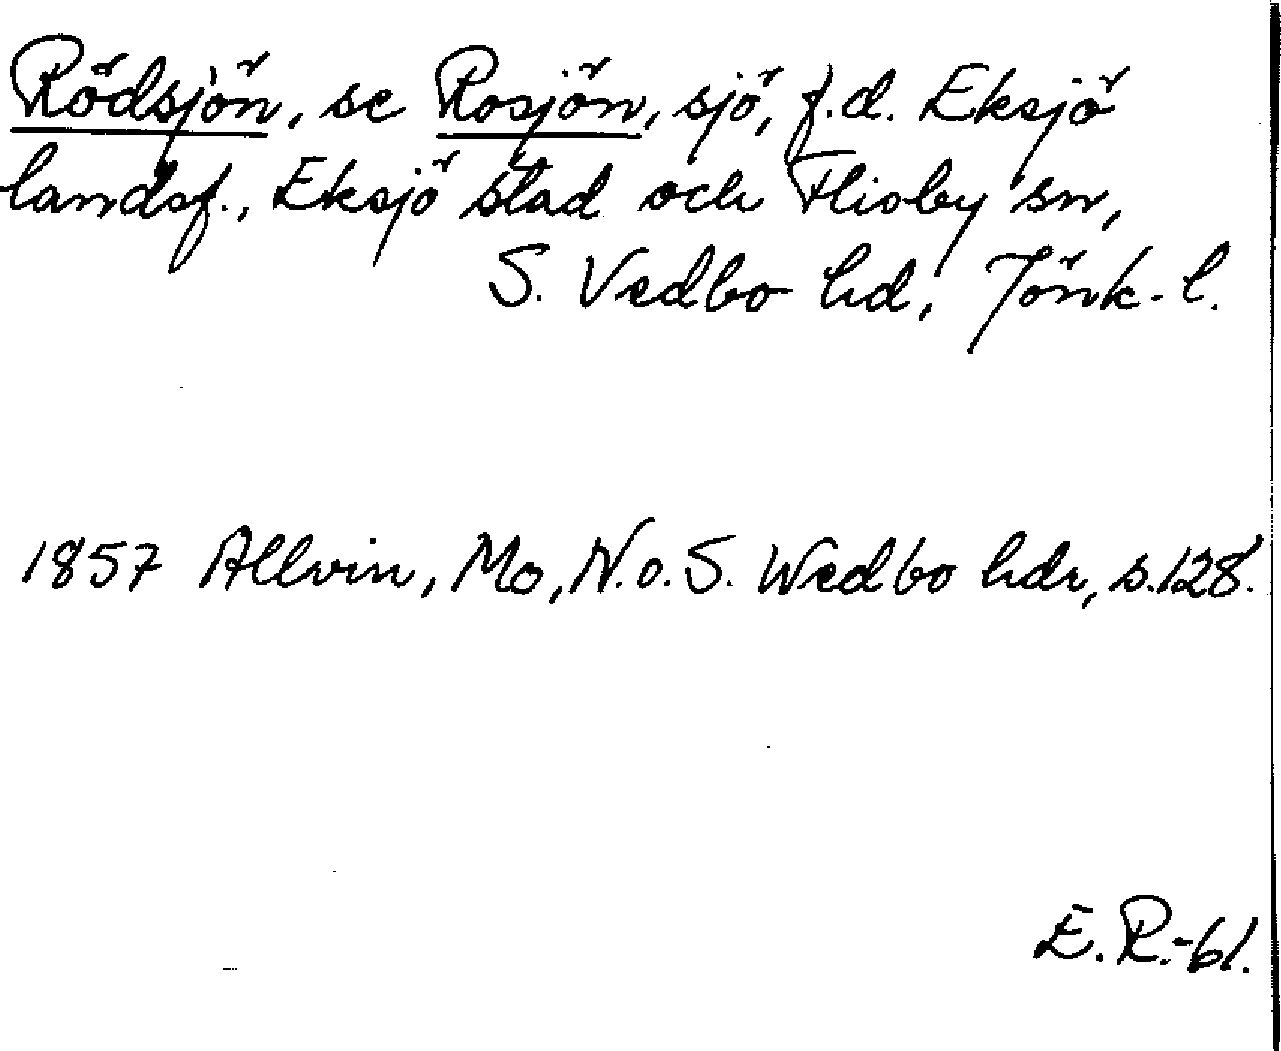 Rödsjön, se Rosjön, sjö, f.d. Eksjö
landsf., Eksjö stad och Flisby sn,
S. Vedbo hd, Jönk. l.
1857 Allvin, Mo, N. o. S. Wedbo hdr, s.128.
E.R.-61.